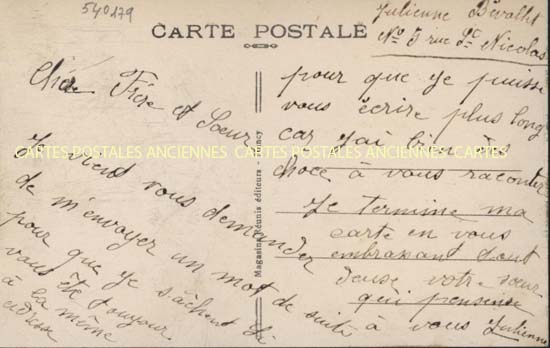 540179
CARTE POSTALE
Julienne
No 5 rue St Nicolas
Chère Frère et Soeur
Je vient vous demander
de m'envoyer un mot de suite
pour que je sache si
vous ête toujour
à la même
adresse
pour que je puisse
vous écrire plus long
car j'ai bien des
choce à vous raconter
Je termine ma
carte en vous
embrassant tout
deuse votre soeur
qui pensense
à vous Julienne
Magasins Réunis éditeurs - Nancy
CARTES POSTALES ANCIENNES CARTES POSTALES ANCIENNES CARTES